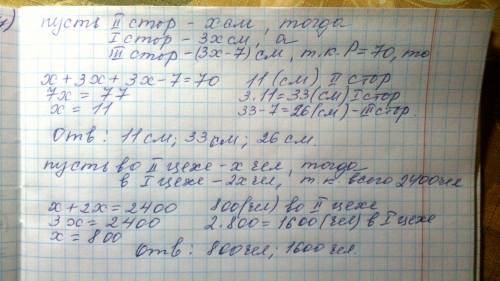 пусть II стор - x см, тогда
I стор - 3x см, а
III стор - (3x-7) см, т.к. P=70, то
x + 3x + 3x - 7 = 70 11 (см) II стор
7x = 77 3·11 = 33 (см) I стор
x = 11 33-7 = 26 (см) - III стор.
Отв: 11 см; 33 см; 26 см.
пусть во II цехе - x чел, тогда
в I цехе - 2x чел, т.к. всего 2400 чел
x + 2x = 2400 800 (чел) во II цехе
3x = 2400 2·800 = 1600 (чел) в I цехе
x = 800
Отв: 800 чел; 1600 чел.